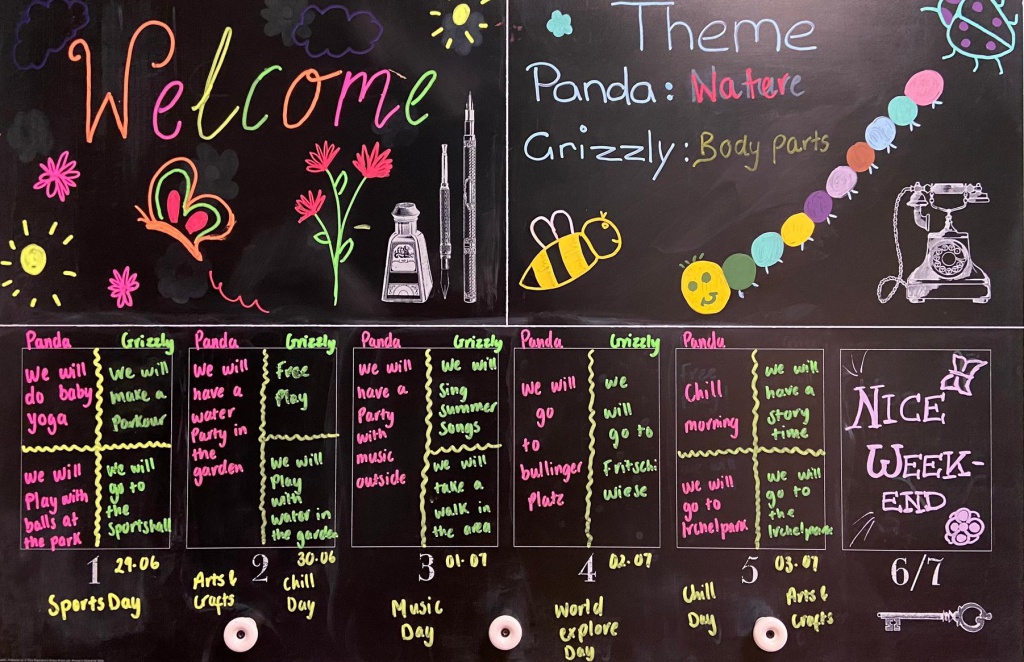 Welcome
Theme
Panda: Nature
Grizzly: Body parts
Panda Grizzly
We will
do baby
yoga
We will
make a
Parkour
We will
Play with
balls at
the park
We will
go to
the
Sportshall
1 29.06
Sports Day
Panda Grizzly
We will
have a
water
Party in
the
garden
Free
Play
We will
Play
with
water in
the garden
2 30.06
Arts &
Crafts
Chill
Day
Panda Grizzly
We will
have a
Party
with
music
outside
We will
Sing
Summer
Songs
We will
take a
walk in
the area
3 01.07
Music
Day
Panda Grizzly
We will
go
to
bullinger
Platz
We
will
go to
Fritschi
wiese
4 02.07
World
explore
Day
Panda
Free
Chill
morning
We will
have a
story
time
We will
go to
Irchelpark
We will
go to
the
Irchelpark
5 03.07
Chill
Day
Arts &
Crafts
NICE
WEEK-
END
6/7